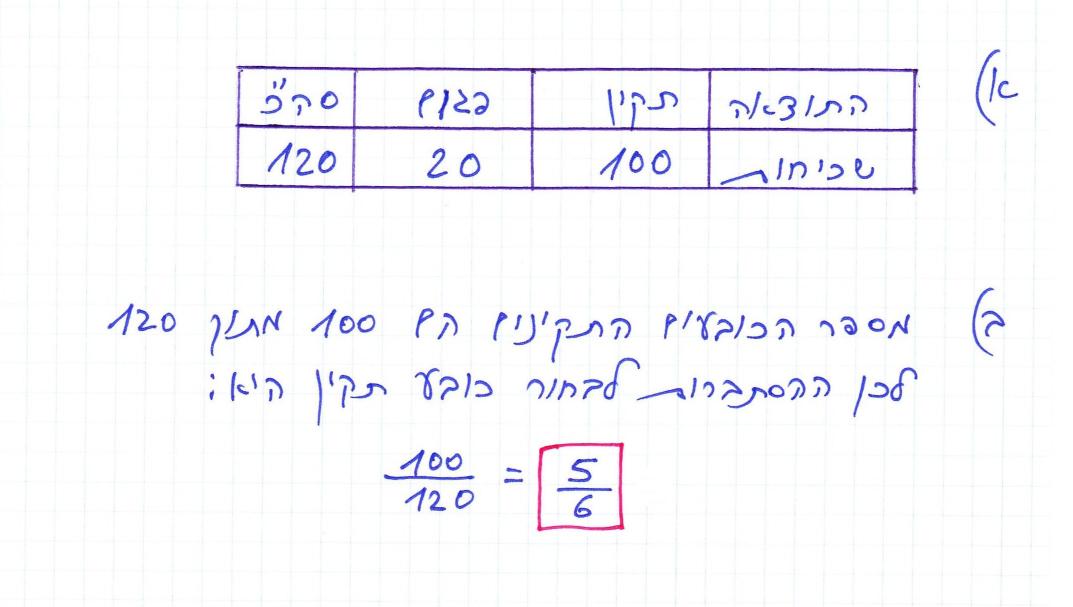 א)
התוצאה תקין פגום סה"כ
שכיחות 100 20 120
ב) מספר הכובעים התקינים הם 100 מתוך 120
לכן ההסתברות לבחור כובע תקין היא:
100/120 = 5/6